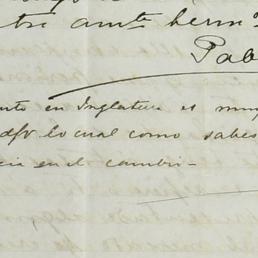 tre amte hermo
Pab
nto en Inglaterra es muy
lo cual como sabes
cia en el cambio-